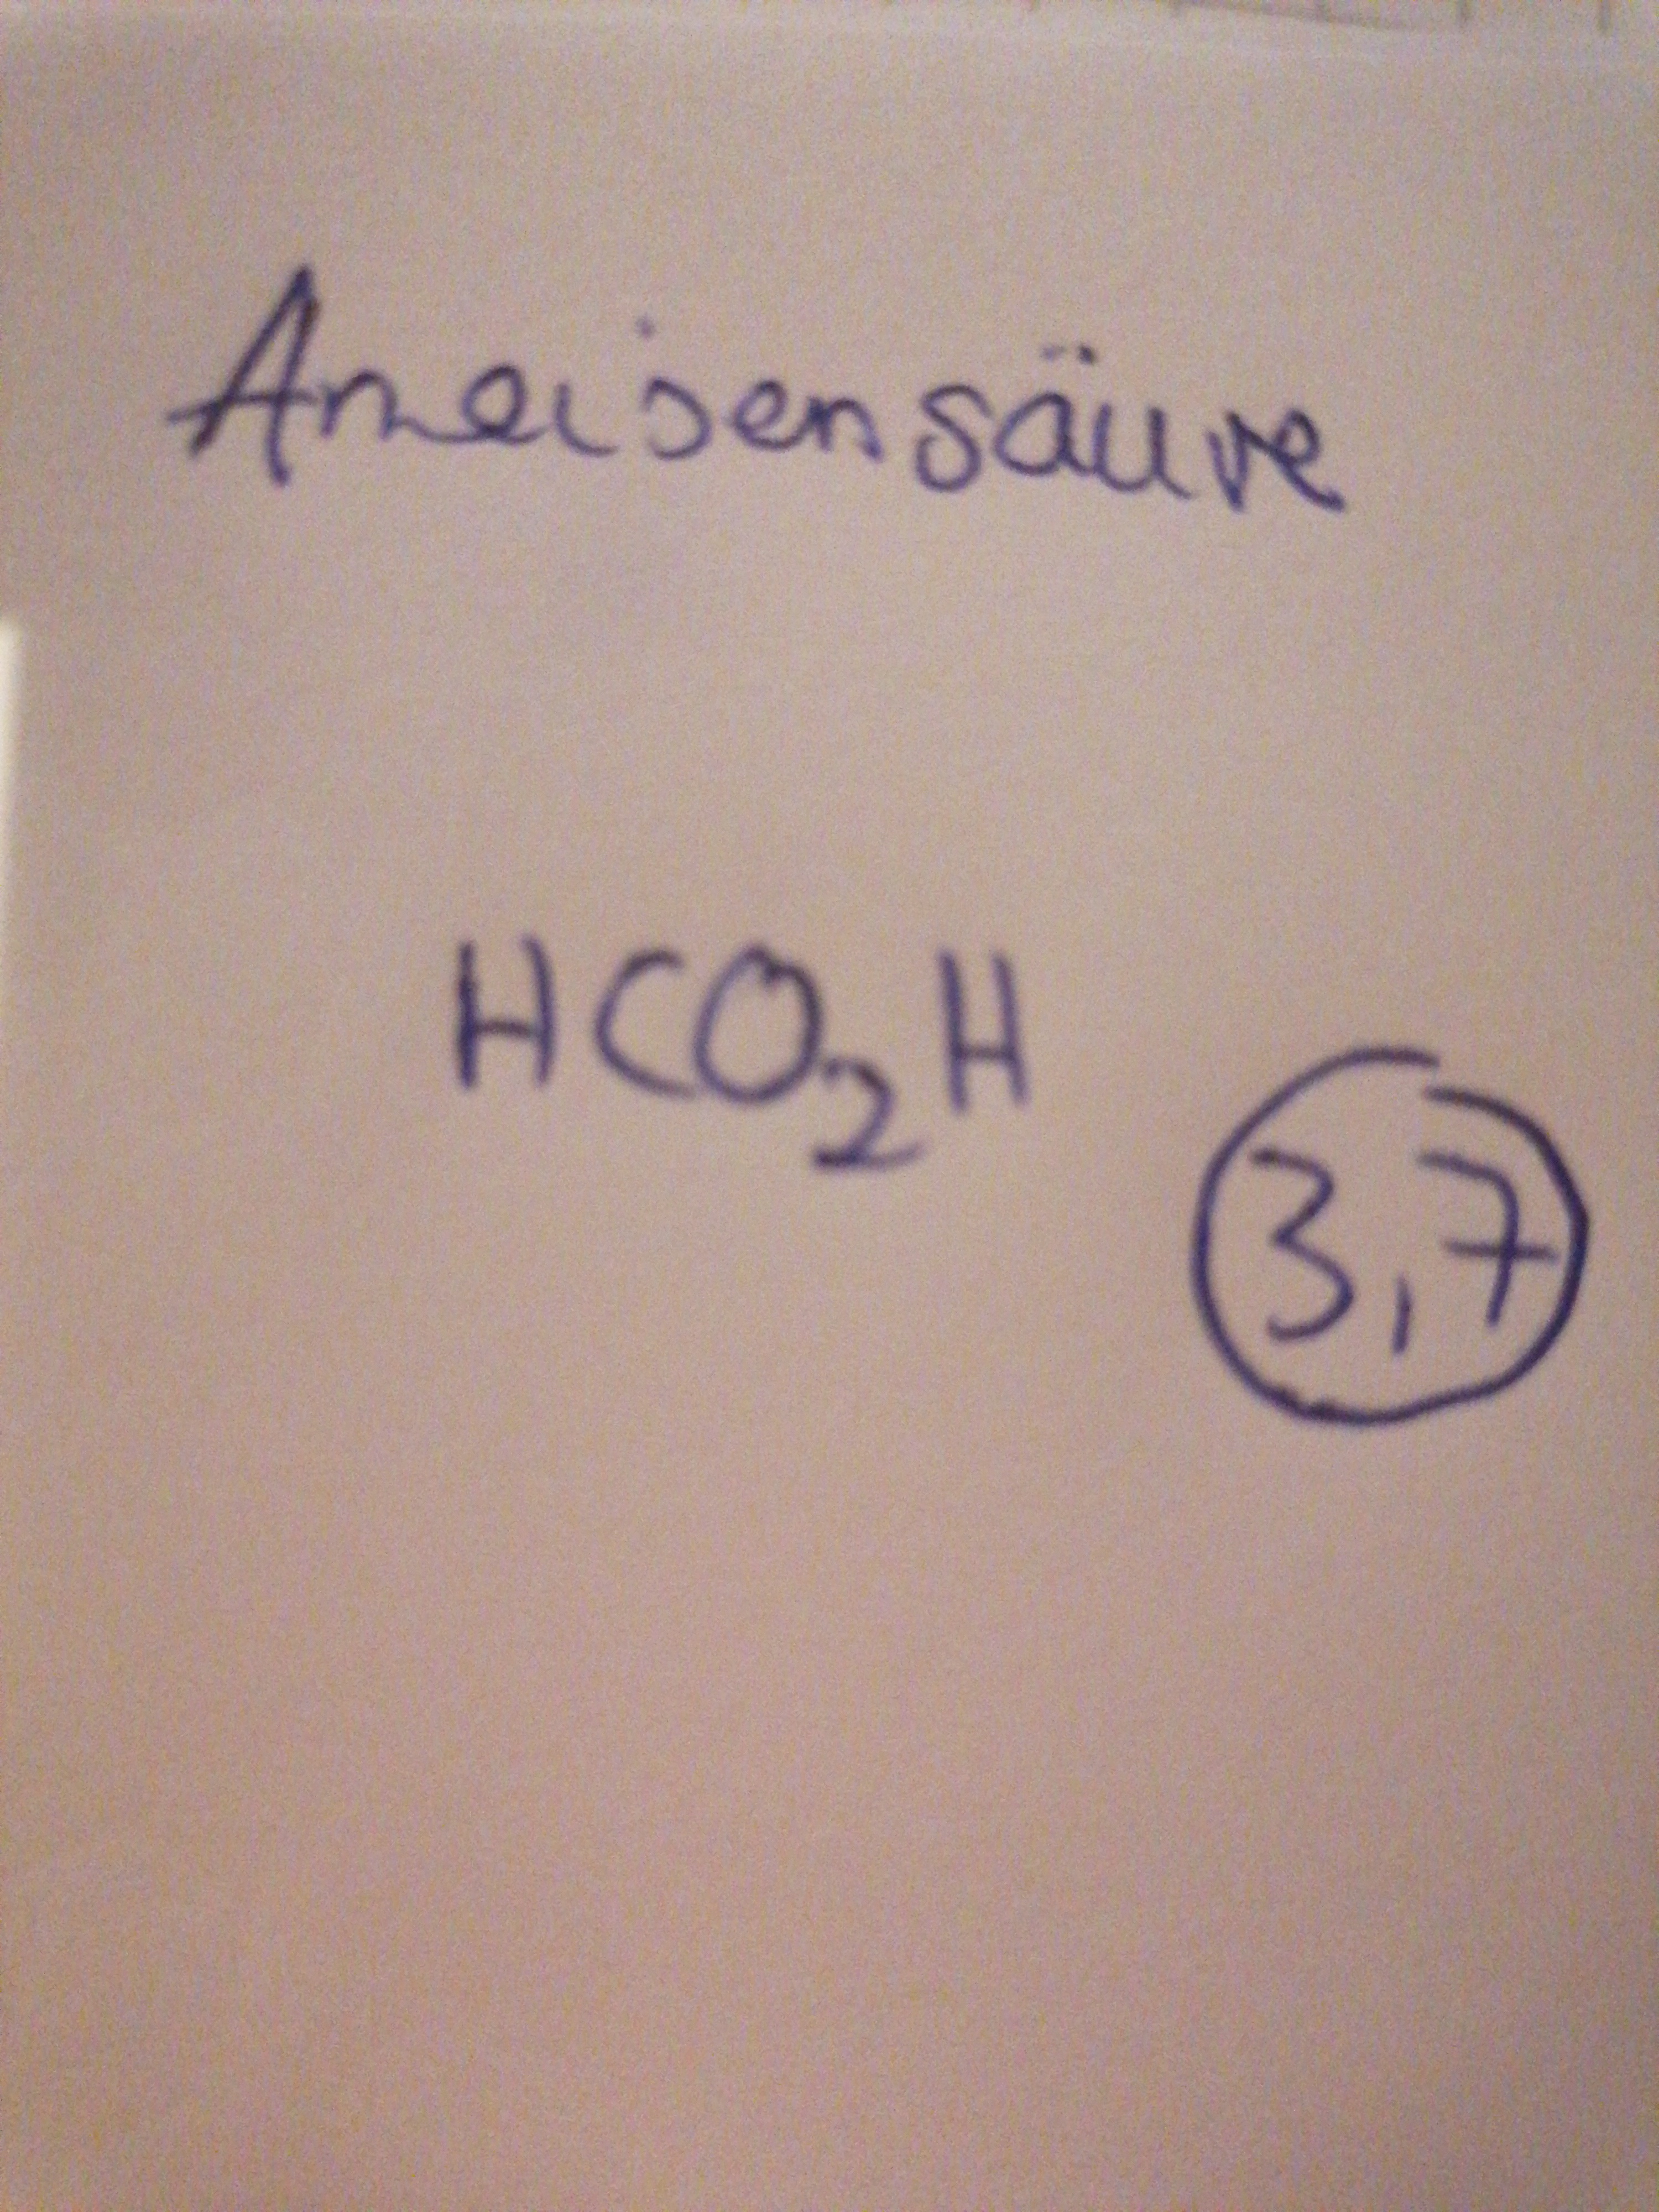 Ameisensäure
HCO₂H
3,7